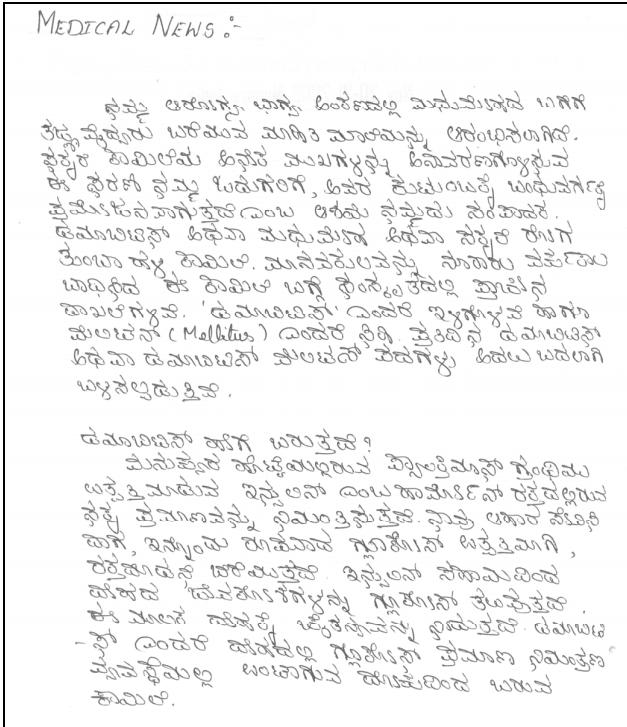 MEDICAL NEWS :-
ನಮ್ಮ ಆರೋಗ್ಯ ಭಾಗ್ಯ ಅಂಕಣದಲ್ಲಿ ಮಧುಮೇಹದ ಬಗೆಗೆ
ತಜ್ಞ ವೈದ್ಯರು ಬರೆಯುವ ಮಾಹಿತಿ ಮಾಲೆಯನ್ನು ಆರಂಭಿಸಲಾಗಿದೆ.
ಸಕ್ಕರೆ ಕಾಯಿಲೆಯ ಅನೇಕ ಮುಖಗಳನ್ನು ಅನಾವರಣಗೊಳಿಸುವ
ಈ ಸರಣಿ ನಮ್ಮ ಓದುಗರಿಗೆ, ಅವರ ಕುಟುಂಬಕ್ಕೆ ಬಂಧುವರ್ಗಕ್ಕೆ
ಪ್ರಯೋಜನವಾಗುತ್ತದೆ ಎಂಬ ಆಶಯ ನಮ್ಮದು ಸಂಪಾದಕ.
ಡಯಾಬಿಟಿಸ್ ಅಥವಾ ಮಧುಮೇಹ ಅಥವಾ ಸಕ್ಕರೆ ರೋಗ
ತುಂಬಾ ಹಳೆ ಕಾಯಿಲೆ. ಮಾನವಕುಲವನ್ನು ನೂರಾರು ವರ್ಷಕಾಲ
ಬಾಧಿಸಿದ ಈ ಕಾಯಿಲೆ ಬಗ್ಗೆ ಸಂಸ್ಕೃತದಲ್ಲಿ ಪ್ರಾಚೀನ
ದಾಖಲೆಗಳಿವೆ. 'ಡಯಾಬಿಟಿಸ್' ಎಂದರೆ ಹಾಗೂ
ಮೆಲಿಟಸ್ (Mellitus) ಎಂದರೆ ಸಿಹಿ. ಪ್ರತಿದಿನ ಡಯಾಬಿಟಿಸ್
ಅಥವಾ ಡಯಾಬಿಟಿಸ್ ಮೆಲಿಟಸ್ ಪದಗಳು ಅದಲು ಬದಲಾಗಿ
ಬಳಸಲ್ಪಡುತ್ತಿವೆ.
ಡಯಾಬಿಟಿಸ್ ಹೇಗೆ ಬರುತ್ತದೆ?
ಮನುಷ್ಯನ ಹೊಟ್ಟೆಯಲ್ಲಿರುವ ಪ್ಯಾಂಕ್ರಿಯಾಸ್ ಗ್ರಂಥಿಯು
ಉತ್ಪತ್ತಿಮಾಡುವ ಇನ್ಸುಲಿನ್ ಎಂಬ ಹಾರ್ಮೋನ್ ರಕ್ತದಲ್ಲಿರುವ
ಸಕ್ಕರೆ ಪ್ರಮಾಣವನ್ನು ನಿಯಂತ್ರಿಸುತ್ತದೆ. ನಾವು ಆಹಾರ ಸೇವಿಸಿ
ದಾಗ, ಇನ್ನೊಂದು ರೂಪವಾದ ಗ್ಲೂಕೋಸ್ ಉತ್ಪತ್ತಿಯಾಗಿ,
ರಕ್ತದೊಡನೆ ಬೆರೆಯುತ್ತದೆ. ಇನ್ಸುಲಿನ್ ಸಹಾಯದಿಂದ
ದೇಹದ ಜೀವಕೋಶಗಳನ್ನು ಗ್ಲೂಕೋಸ್ ತಲುಪುತ್ತದೆ.
ಈ ಮೂಲಕ ದೇಹಕ್ಕೆ ಚೈತನ್ಯವನ್ನು ನೀಡುತ್ತದೆ. ಡಯಾಬಿಟಿ
-ಸ್ ಎಂದರೆ ದೇಹದಲ್ಲಿ ಗ್ಲೂಕೋಸ್ ಪ್ರಮಾಣ ನಿಯಂತ್ರಣ
ವ್ಯವಸ್ಥೆಯಲ್ಲಿ ಉಂಟಾಗುವ ತೊಡಕುದಿಂದ ಬರುವ
ಕಾಯಿಲೆ.